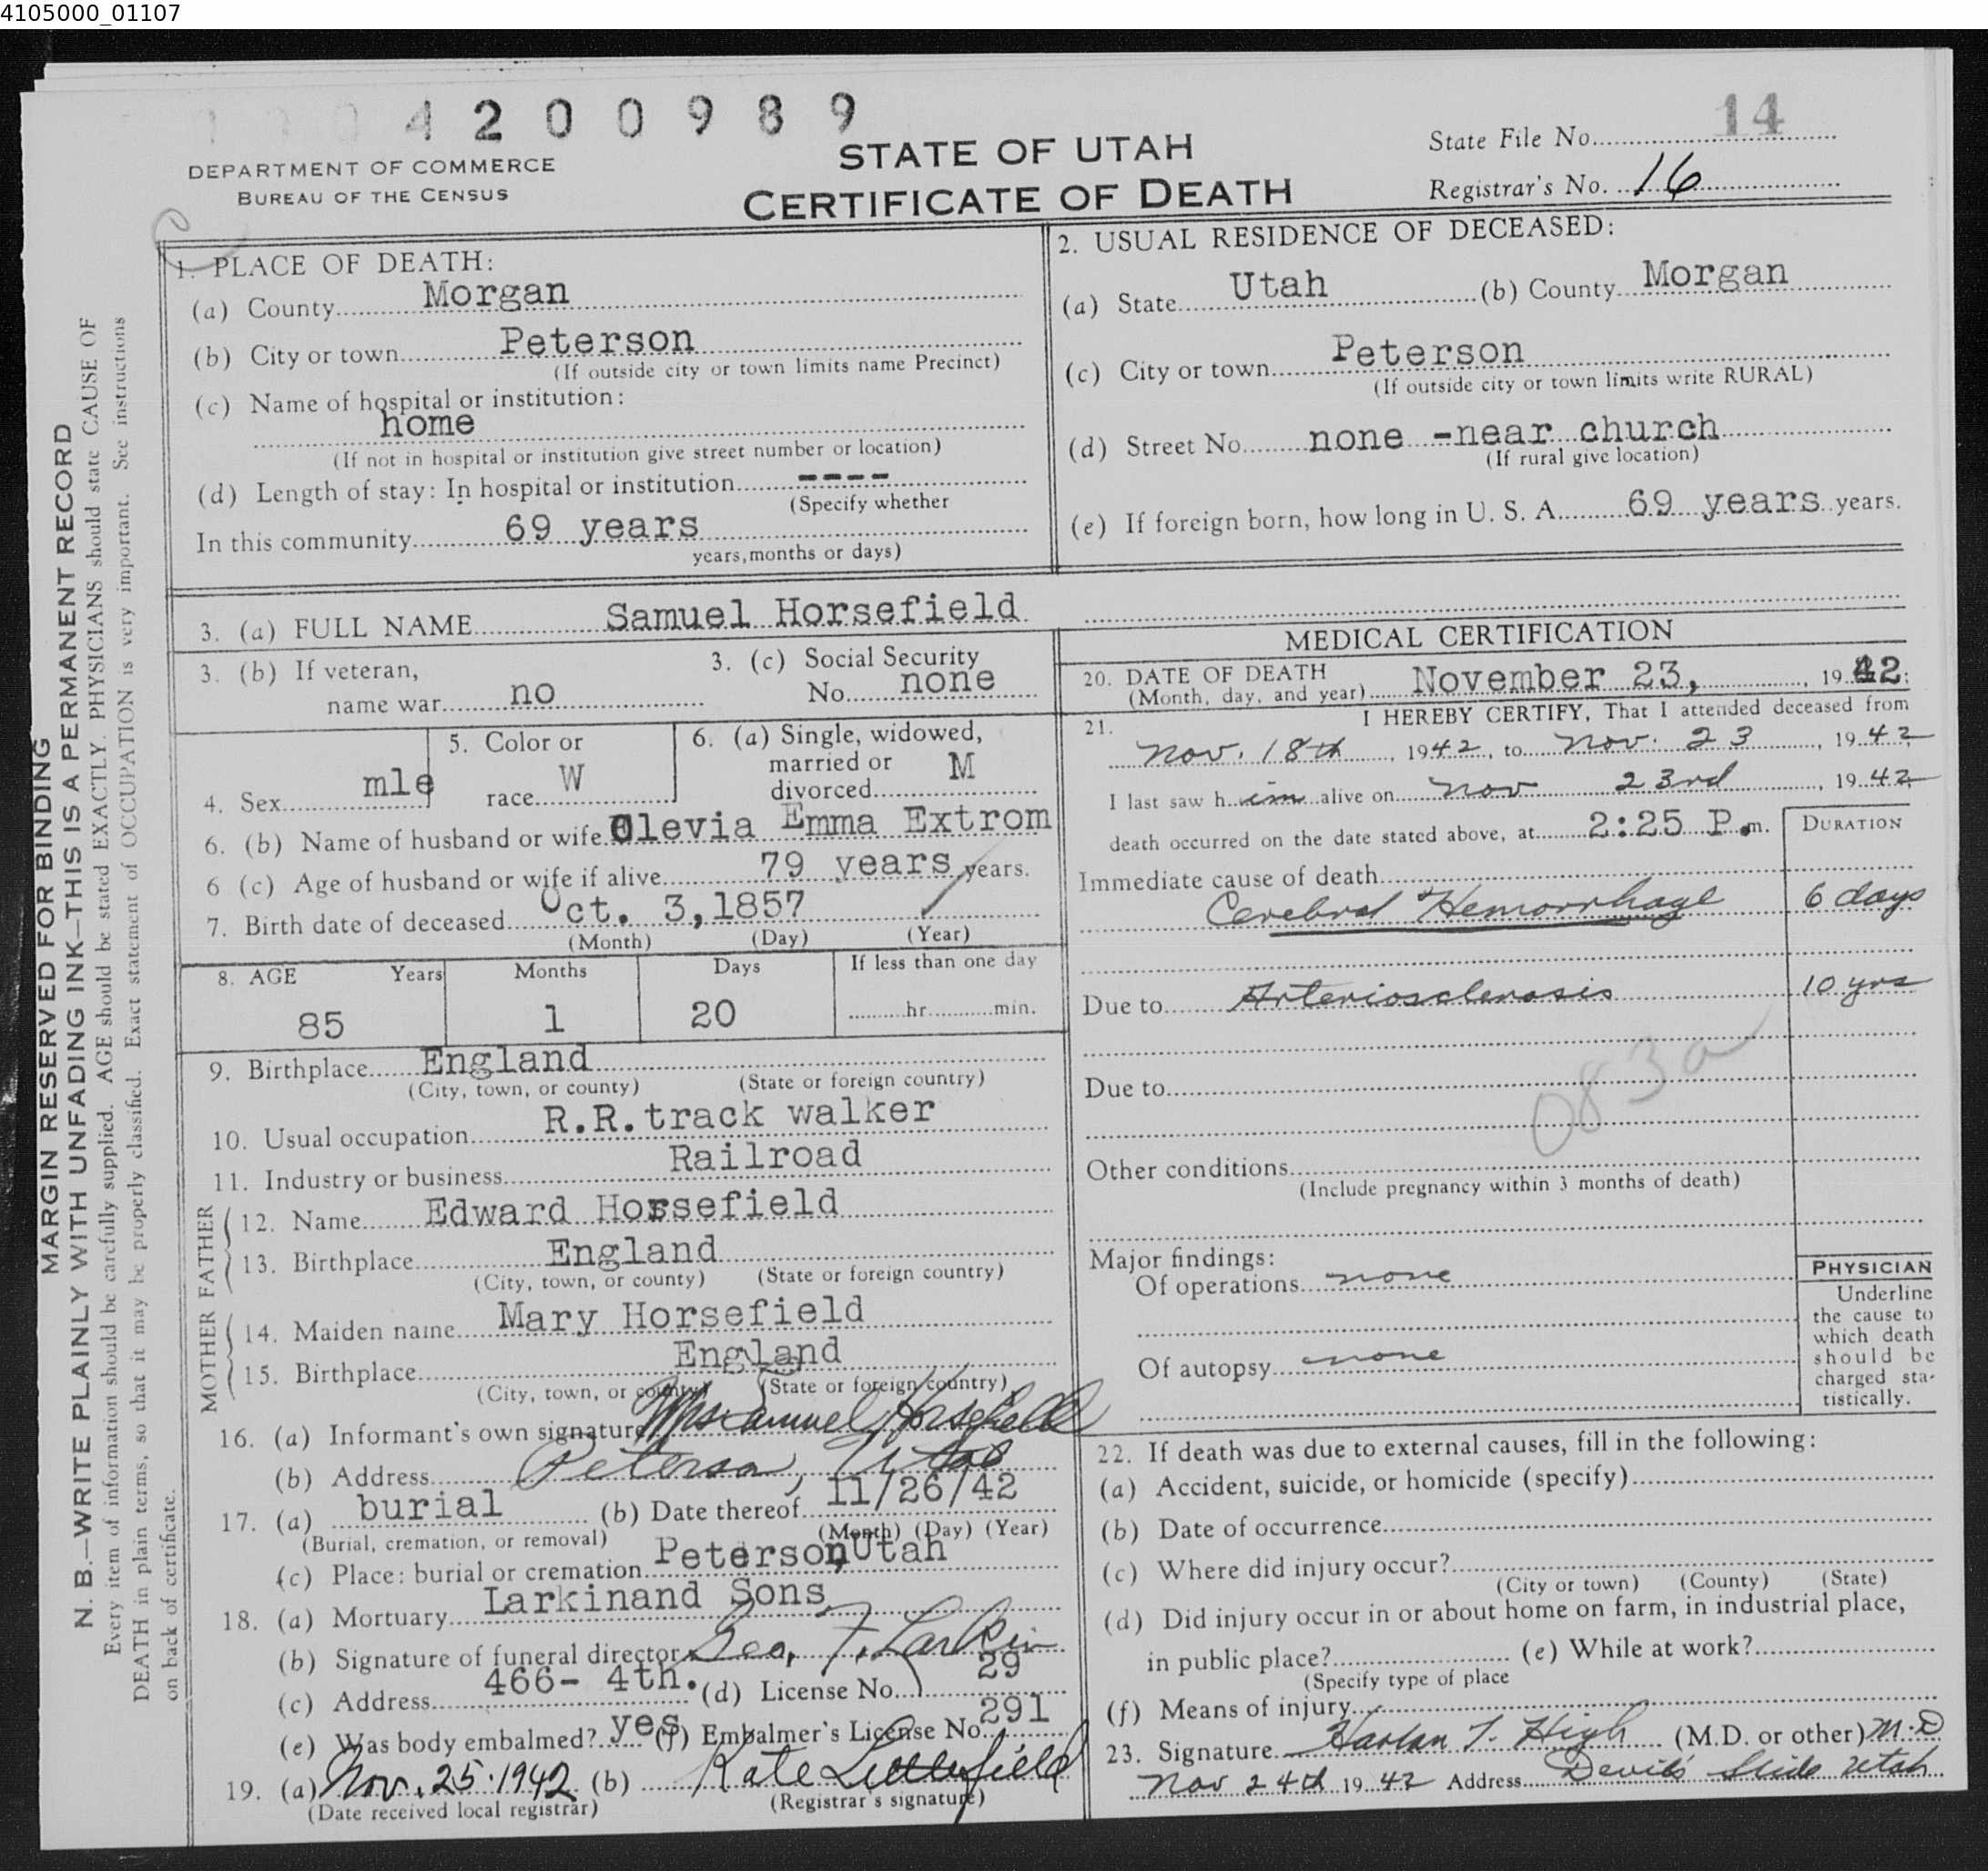 4105000_01107
4 2 0 0 9 8 9
14
DEPARTMENT OF COMMERCE
BUREAU OF THE CENSUS
STATE OF UTAH
CERTIFICATE OF DEATH
State File No.
Registrar's No. 16
MARGIN RESERVED FOR BINDING
N. B.—WRITE PLAINLY WITH UNFADING INK—THIS IS A PERMANENT RECORD
Every item of information should be carefully supplied. AGE should be stated EXACTLY. PHYSICIANS should state CAUSE OF
DEATH in plain terms, so that it may be properly classified. Exact statement of OCCUPATION is very important. See instructions
on back of certificate.
1. PLACE OF DEATH:
(a) County Morgan
(b) City or town Peterson
(If outside city or town limits name Precinct)
(c) Name of hospital or institution:
home
(If not in hospital or institution give street number or location)
(d) Length of stay: In hospital or institution ----
(Specify whether
In this community 69 years
years, months or days)
2. USUAL RESIDENCE OF DECEASED:
(a) State Utah (b) County Morgan
(c) City or town Peterson
(If outside city or town limits write RURAL)
(d) Street No. none -near church
(If rural give location)
(e) If foreign born, how long in U. S. A. 69 years years.
3. (a) FULL NAME Samuel Horsefield
3. (b) If veteran,
name war no
3. (c) Social Security
No. none
4. Sex mle
5. Color or
race W
6. (a) Single, widowed,
married or
divorced M
6. (b) Name of husband or wife Olevia Emma Extrom
6 (c) Age of husband or wife if alive 79 years years.
7. Birth date of deceased Oct. 3,1857
(Month) (Day) (Year)
8. AGE Years Months Days If less than one day
85 1 20 hr. min.
9. Birthplace England
(City, town, or county) (State or foreign country)
10. Usual occupation R.R.track walker
11. Industry or business Railroad
FATHER
12. Name Edward Horsefield
13. Birthplace England
(City, town, or county) (State or foreign country)
MOTHER
14. Maiden name Mary Horsefield
15. Birthplace England
(City, town, or county) (State or foreign country)
16. (a) Informant's own signature Mrs Samuel Horsefield
(b) Address Peterson, Utah
17. (a) burial (b) Date thereof 11/26/42
(Burial, cremation, or removal) (Month) (Day) (Year)
(c) Place: burial or cremation Peterson,Utah
18. (a) Mortuary Larkinand Sons
(b) Signature of funeral director Geo. T. Larkin
(c) Address 466- 4th. (d) License No. 29
(e) Was body embalmed? yes (f) Embalmer's License No. 291
19. (a) Nov. 25. 1942 (b) Kate Littlefield
(Date received local registrar) (Registrar's signature)
MEDICAL CERTIFICATION
20. DATE OF DEATH
(Month, day, and year) November 23, , 1942.
21. I HEREBY CERTIFY, That I attended deceased from
Nov. 18th, 1942, to Nov. 23, 1942
I last saw him alive on Nov 23rd, 1942
death occurred on the date stated above, at 2:25 P.m.
DURATION
Immediate cause of death
Cerebral Hemorrhage 6 days
Due to Arteriosclerosis 10 yrs
083a
Due to
Other conditions
(Include pregnancy within 3 months of death)
Major findings:
Of operations none
Of autopsy none
PHYSICIAN
Underline
the cause to
which death
should be
charged sta-
tistically.
22. If death was due to external causes, fill in the following:
(a) Accident, suicide, or homicide (specify)
(b) Date of occurrence
(c) Where did injury occur?
(City or town) (County) (State)
(d) Did injury occur in or about home on farm, in industrial place,
in public place? (e) While at work?
(Specify type of place
(f) Means of injury
23. Signature Harlan T. High (M.D. or other) M.D
Nov 24th 1942 Address Devil's Slide Utah